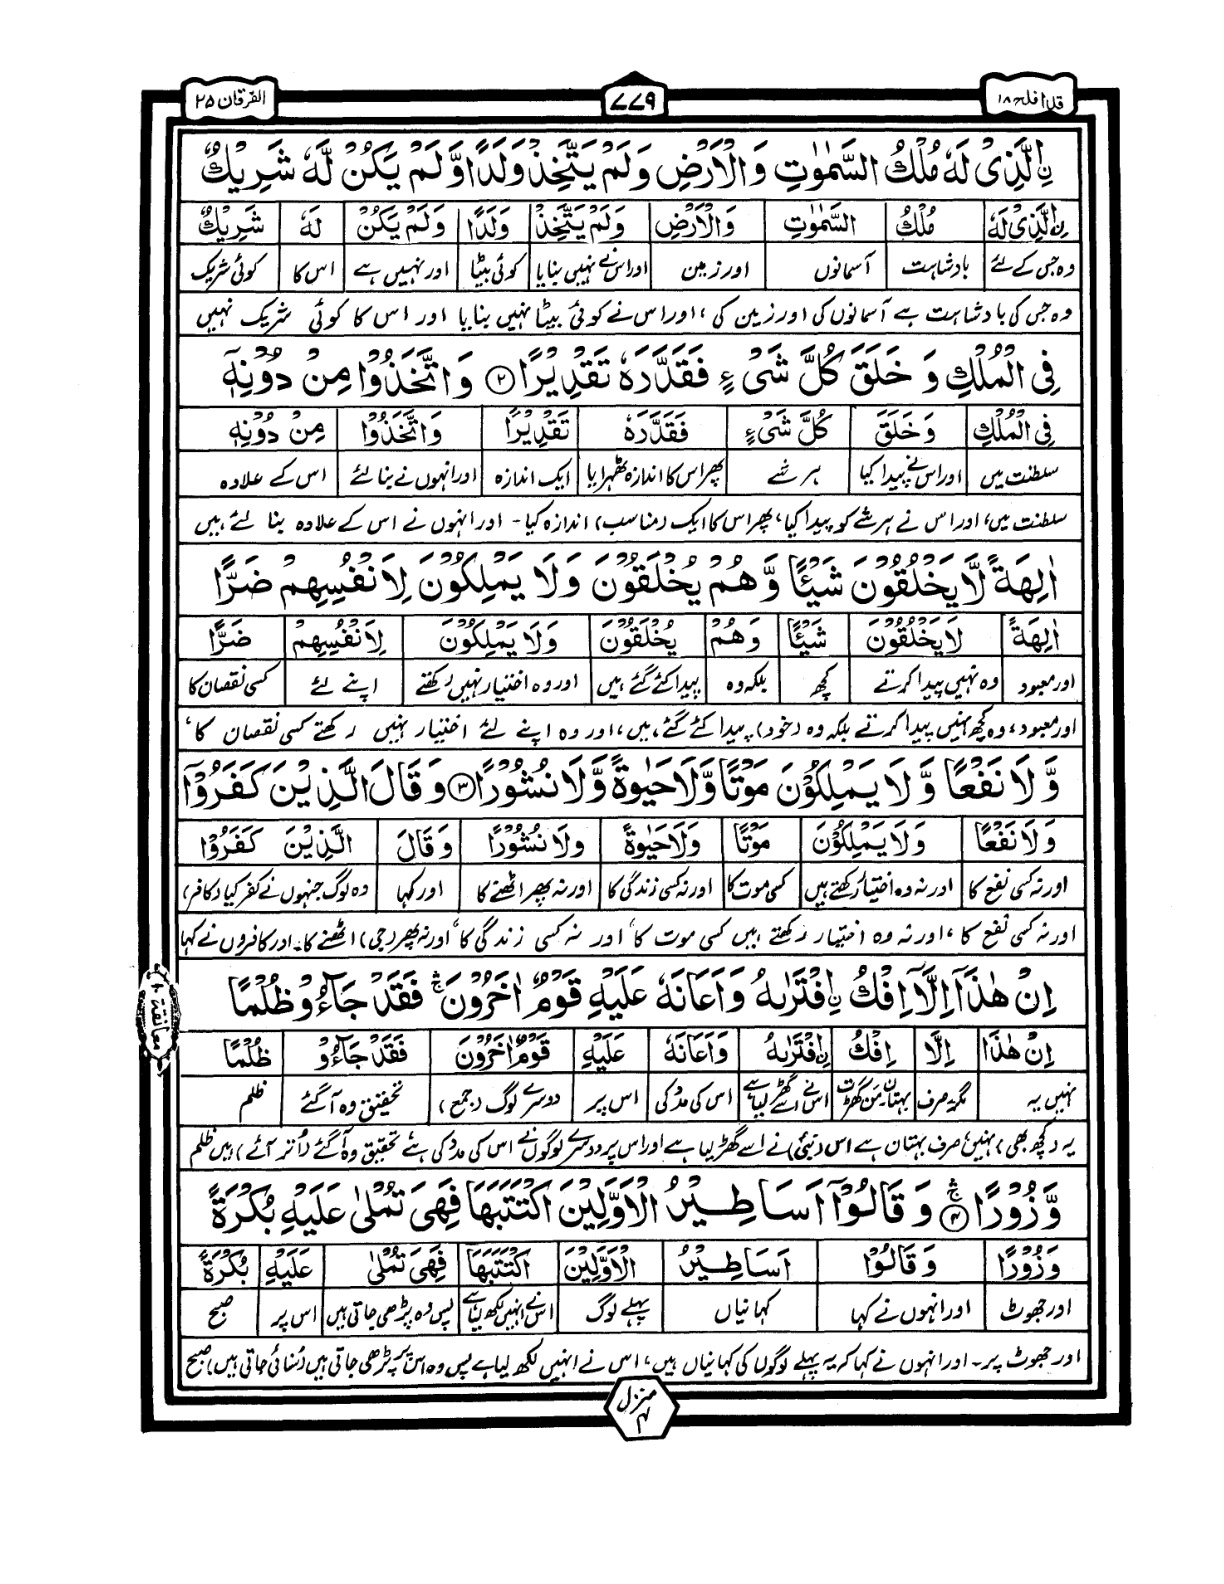 قد افلح ۱۸
۷۷۹
الفرقان ۲۵
اِ۟لَّذِیْ لَهٗ مُلْكُ السَّمٰوٰتِ وَالْاَرْضِ وَلَمْ یَتَّخِذْ وَلَدًا وَّلَمْ یَكُنْ لَّهٗ شَرِیْكٌ
اِ۟لَّذِیْ لَهٗ مُلْكُ السَّمٰوٰتِ وَالْاَرْضِ وَلَمْ یَتَّخِذْ وَلَدًا وَلَمْ یَكُنْ لَهٗ شَرِیْكٌ
وہ جس کے لئے بادشاہت آسمانوں اور زمین اور اس نے نہیں بنایا کوئی بیٹا اور نہیں ہے اس کا کوئی شریک
وہ جس کی بادشاہت ہے آسمانوں کی اور زمین کی، اور اس نے کوئی بیٹا نہیں بنایا اور اس کا کوئی شریک نہیں
فِی الْمُلْكِ وَ خَلَقَ كُلَّ شَیْءٍ فَقَدَّرَهٗ تَقْدِیْرًا ۲ وَ اتَّخَذُوْا مِنْ دُوْنِهٖۤ
فِی الْمُلْكِ وَ خَلَقَ كُلَّ شَیْءٍ فَقَدَّرَهٗ تَقْدِیْرًا وَاتَّخَذُوْا مِنْ دُوْنِهٖ
سلطنت میں اور اس نے پیدا کیا ہر شے پھر اس کا اندازہ ٹھہرایا ایک اندازہ اور انہوں نے بنالئے اس کے علاوہ
سلطنت میں، اور اس نے ہر شے کو پیدا کیا، پھر اس کا ایک (مناسب) اندازہ کیا۔ اور انہوں نے اس کے علاوہ بنا لئے ہیں
اٰلِهَةً لَّا یَخْلُقُوْنَ شَیْـًٔا وَّ هُمْ یُخْلَقُوْنَ وَلَا یَمْلِكُوْنَ لِاَنْفُسِهِمْ ضَرًّا
اٰلِهَةً لَا یَخْلُقُوْنَ شَیْـًٔا وَهُمْ یُخْلَقُوْنَ وَلَا یَمْلِكُوْنَ لِاَنْفُسِهِمْ ضَرًّا
اور معبود وہ نہیں پیدا کرتے کچھ بلکہ وہ پیدا کئے گئے ہیں اور وہ اختیار نہیں رکھتے اپنے لئے کسی نقصان کا
اور معبود، وہ کچھ نہیں پیدا کرتے بلکہ وہ (خود) پیدا کئے گئے ہیں، اور وہ اپنے لئے اختیار نہیں رکھتے کسی نقصان کا،
وَّ لَا نَفْعًا وَّ لَا یَمْلِكُوْنَ مَوْتًا وَّلَا حَیٰوةً وَّلَا نُشُوْرًا ۳ وَ قَالَ الَّذِیْنَ كَفَرُوْۤا
وَلَا نَفْعًا وَلَا یَمْلِكُوْنَ مَوْتًا وَلَا حَیٰوةً وَلَا نُشُوْرًا وَ قَالَ الَّذِیْنَ كَفَرُوْا
اور نہ کسی نفع کا اور نہ وہ اختیار رکھتے ہیں کسی موت کا اور نہ کسی زندگی کا اور نہ پھر اٹھنے کا اور کہا وہ لوگ جنہوں نے کفر کیا (کافر)
اور نہ کسی نفع کا، اور نہ وہ اختیار رکھتے ہیں کسی موت کا، اور نہ کسی زندگی کا، اور نہ پھر (جی) اٹھنے کا۔ اور کافروں نے کہا
اِنْ هٰذَاۤ اِلَّاۤ اِفْكُ اِ۟فْتَرٰىهُ وَ اَعَانَهٗ عَلَیْهِ قَوْمٌ اٰخَرُوْنَ ۛۚ فَقَدْ جَآءُوْ ظُلْمًا
معانقة ۱۰
اِنْ هٰذَا اِلَّا اِفْكُ اِ۟فْتَرٰىهُ وَاَعَانَهٗ عَلَیْهِ قَوْمٌ اٰخَرُوْنَ فَقَدْ جَآءُوْ ظُلْمًا
نہیں یہ مگر۔ صرف بہتان۔ من گھڑت اس نے اسے گھڑ لیا ہے اس کی مدد کی اس پر دوسرے لوگ (جمع) تحقیق وہ آگئے ظلم
یہ (کچھ بھی) نہیں، صرف بہتان ہے اس (نبی) نے اسے گھڑ لیا ہے اور اس پر دوسرے لوگوں نے اس کی مدد کی ہے، تحقیق وہ آگئے (اُتر آئے) ہیں ظلم
وَّ زُوْرًا ۴ۛۚ وَ قَالُوْۤا اَسَاطِیْرُ الْاَوَّلِیْنَ اكْتَتَبَهَا فَهِیَ تُمْلٰى عَلَیْهِ بُكْرَةً
وَ زُوْرًا وَ قَالُوْا اَسَاطِیْرُ الْاَوَّلِیْنَ اكْتَتَبَهَا فَهِیَ تُمْلٰى عَلَیْهِ بُكْرَةً
اور جھوٹ اور انہوں نے کہا کہانیاں پہلے لوگ اس نے انہیں لکھ لیا ہے پس وہ پڑھی جاتی ہیں اس پر صبح
اور جھوٹ پر۔ اور انہوں نے کہا کہ یہ پہلے لوگوں کی کہانیاں ہیں، اس نے انہیں لکھ لیا ہے پس وہ اس پر پڑھی جاتی ہیں (سُنائی جاتی ہیں) صبح
منزل ۴